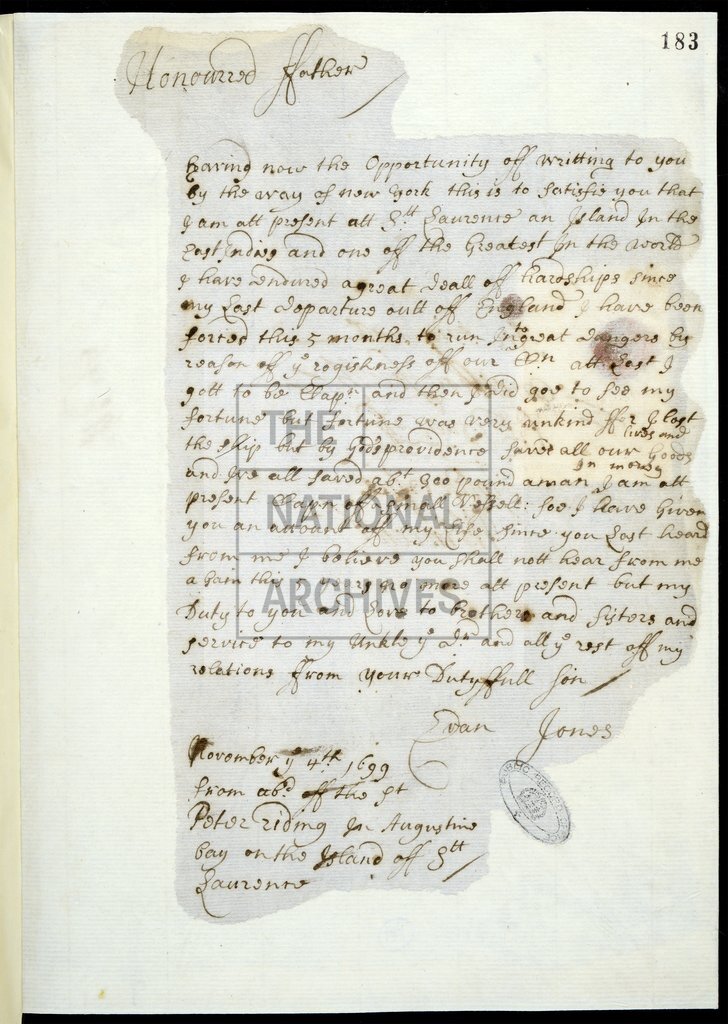 183
Honourred ffather
Having now the Opportunity off writting to you
by the way of new york this is to satisfie you that
I am att present att Stt Laurence an Island In the
East Indies and one off the Greatest In the world
I have Endured a great deall off hardships since
my Last departure outt off England I have been
forced this 5 months to run Into great dangers by
reason off ye rogishness off our Mn att Last I
gott to be Capn and then I did goe to see my
fortune but fortune was very unkind ffor I Lost
the ship but by Gods providence saved all our Lives and Goods
and we all saved abt 300 pound a man In money I am att
present Capn of a small Vessell: soe I have Given
you an account off my Life since you Last heard
from me I believe you shall nott hear from me
again this 5 years no more att present but my
Duty to you and Love to brothers and sisters and
service to my Unkle ye Dr and all ye rest off my
relations from your Dutyffull son
Evan Jones
November ye 4th 1699
from abd off the St
Peter riding In Augustine
bay on the Island off Stt
Laurence
THE
NATIONAL
ARCHIVES